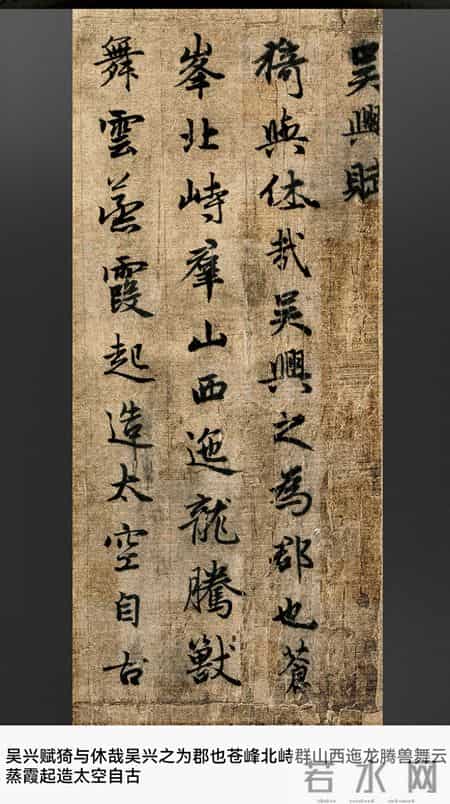 吳興賦
猗與休哉吳興之為郡也蒼
峯北峙羣山西迤龍騰獸
舞雲蒸霞起造太空自古
吴兴赋猗与休哉吴兴之为郡也苍峰北峙群山西迤龙腾兽舞云
蒸霞起造太空自古
若水网